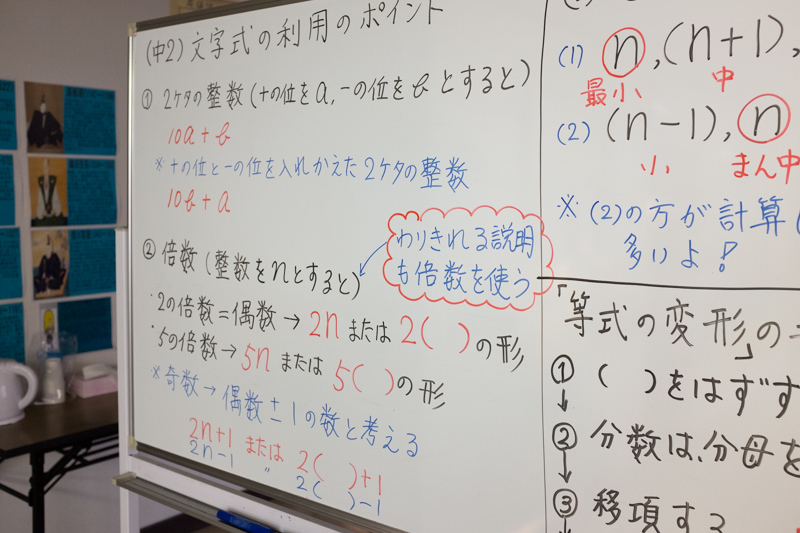 (中2) 文字式の利用のポイント
① 2ケタの整数 (十の位をa, 一の位をbとすると)
10a + b
※ 十の位と一の位を入れかえた2ケタの整数
10b + a
② 倍数 (整数をnとすると)
わりきれる説明
も倍数を使う
・2の倍数 = 偶数 → 2n または 2( ) の形
・5の倍数 → 5n または 5( ) の形
※ 奇数 → 偶数 ± 1 の数と考える
2n+1 または 2( )+1
2n-1 〃 2( )-1
(1) n, (n+1),
最小 中
(2) (n-1), n
小 まん中
※ (2)の方が計算
多いよ!
「等式の変形」の
① ( )をはずす
↓
② 分数は、分母を
↓
③ 移項する
↓